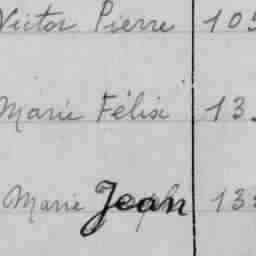 Victor Pierre 105
Marie Félix 13
Marie Jean 13